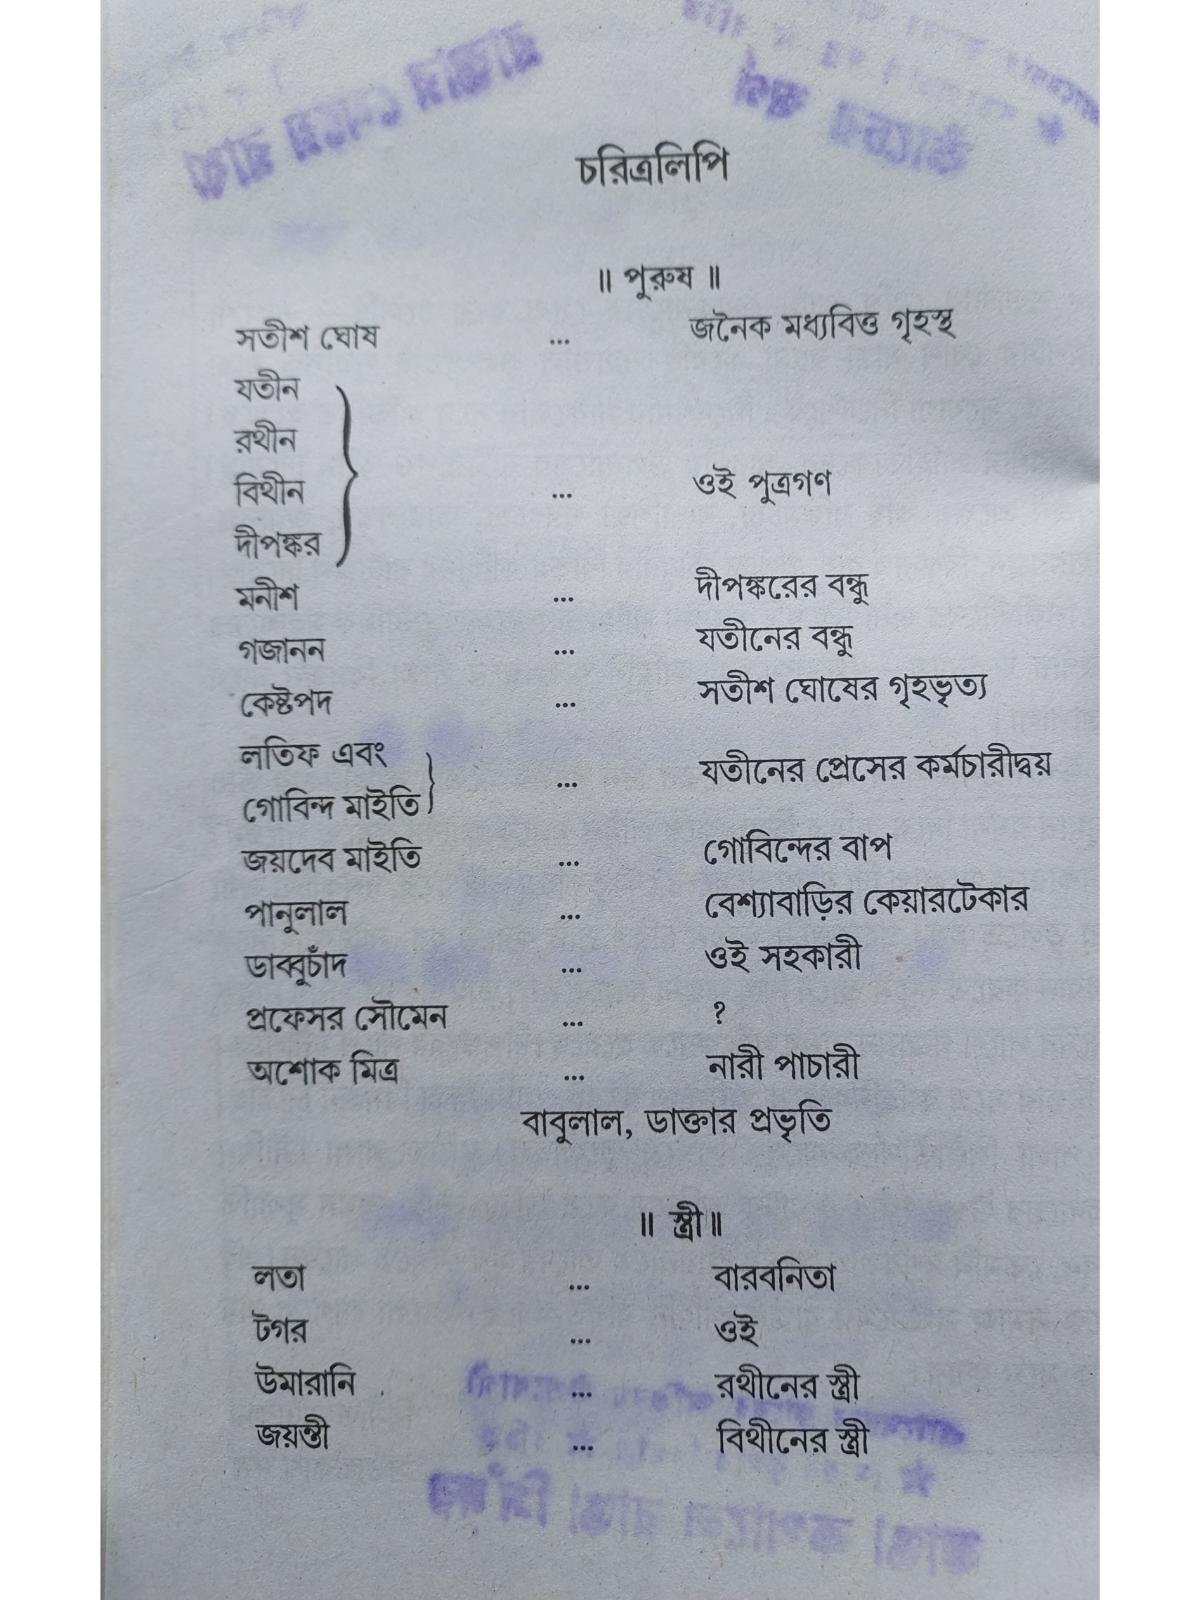 চরিত্রলিপি
॥ পুরুষ ॥
সতীশ ঘোষ ... জনৈক মধ্যবিত্ত গৃহস্থ
যতীন
রথীন
বিথীন ... ওই পুত্রগণ
দীপঙ্কর
মনীশ ... দীপঙ্করের বন্ধু
গজানন ... যতীনের বন্ধু
কেষ্টপদ ... সতীশ ঘোষের গৃহভৃত্য
লতিফ এবং
গোবিন্দ মাইতি ... যতীনের প্রেসের কর্মচারীদ্বয়
জয়দেব মাইতি ... গোবিন্দের বাপ
পানুলাল ... বেশ্যাবাড়ির কেয়ারটেকার
ডাব্বুচাঁদ ... ওই সহকারী
প্রফেসর সৌমেন ... ?
অশোক মিত্র ... নারী পাচারী
বাবুলাল, ডাক্তার প্রভৃতি
॥ স্ত্রী ॥
লতা ... বারবনিতা
টগর ... ওই
উমারানি ... রথীনের স্ত্রী
জয়ন্তী ... বিথীনের স্ত্রী